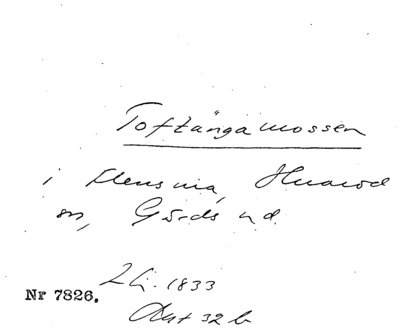 Toftängamossen
i Elens mä, Huarod
sn, Gärds hd.
Nr 7826. Li. 1833
Akt 32 b